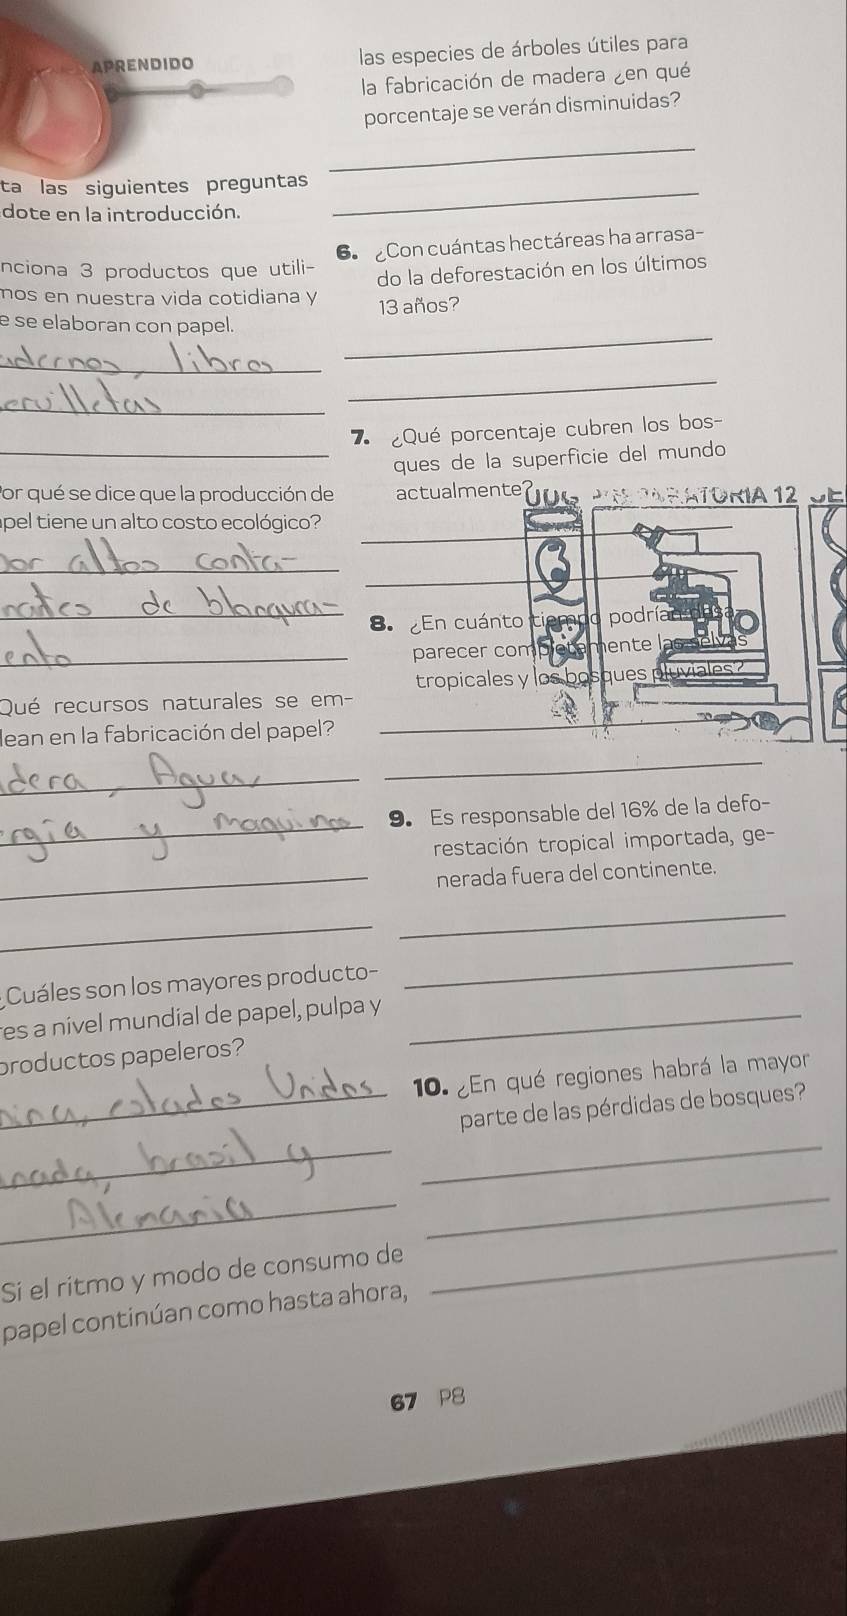 APRENDIDO
ta las siguientes preguntas
dote en la introducción.
nciona 3 productos que utili-
mos en nuestra vida cotidiana y
e se elaboran con papel.
adernos, libros
ervilletas
Por qué se dice que la producción de
apel tiene un alto costo ecológico?
por altos conta-
nantes de blanquea-
ento
Qué recursos naturales se em-
lean en la fabricación del papel?
dera, Agua,
ergia y maquinas
¿Cuáles son los mayores producto-
res a nivel mundial de papel, pulpa y
productos papeleros?
hina, estados Unidos
nada, brasil y
Alemania
Si el ritmo y modo de consumo de
papel continúan como hasta ahora,
las especies de árboles útiles para
la fabricación de madera ¿en qué
porcentaje se verán disminuidas?
6. ¿Con cuántas hectáreas ha arrasa-
do la deforestación en los últimos
13 años?
7. ¿Qué porcentaje cubren los bos-
ques de la superficie del mundo
actualmente?
12
8. ¿En cuánto tiempo podrían desa
parecer completamente las selvas
tropicales y los bosques pluviales?
9. Es responsable del 16% de la defo-
restación tropical importada, ge-
nerada fuera del continente.
10. ¿En qué regiones habrá la mayor
parte de las pérdidas de bosques?
67 P8